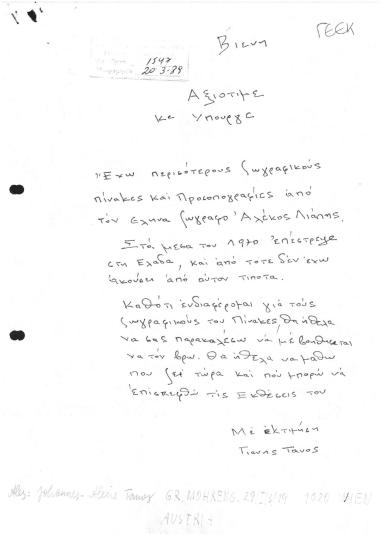 ΓΕΕΚ
Βιεννη
1547
20-3-89
Αξιοτιμε
Κε Υπουργε
"Εχω περισότερους ζωγραφικούς
πίνακες και Προσοπογραφίες από
τόν Ελληνα ζωγραφο Ἀλέκος Λιάπης.
Στά μεσα του 1970 ἐπέστρεψε
στη Ελαδα, και ἀπό τοτε δέν ἔχω
ἀκούσει ἀπό αὐτον τιποτα.
Καθότι ἐνδιαφέρομαι γιά τούς
ζωγραφικούς του Πίνακες, θη ἤθελα
νά σας παρακαλέσω νά μέ βοηθησεται
νά τόν βρω. Θα ἤθελα να μάθω
που ζεῖ τώρα και ποὐ μπορῶ νά
ἐπισκεφθῶ τίς Εκθέσεις του
Μέ ἐκτιμήση
Γιανης Τανος
Johannes Tanos GR. MOHRENG. 1020 WIEN
AUSTRIA